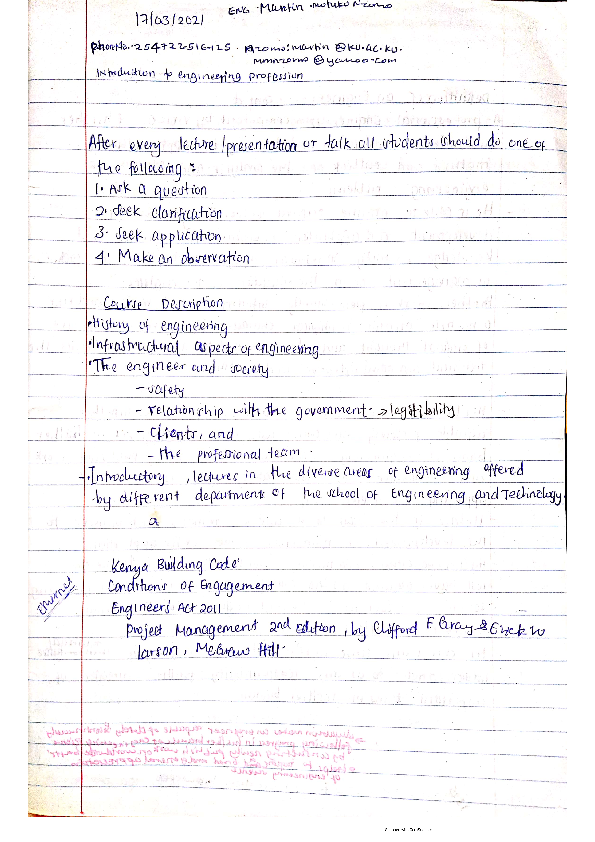 17/03/2021
ENG. Martin Nzomo
phone No. 254722516125. nzomo.martin @KU.AC.KU.
mnnzomo @yahoo.com
Introduction to engineering profession
After every lecture /presentation or talk all students should do one of
the following :
1. Ask a question
2. Seek clarification
3. Seek application.
4. Make an observation
Course Description
•History of engineering
•Infrastructural aspects of engineering
•The engineer and society
– safety
– relationship with the government → legitibility
– clients, and
– the professional team.
–.Introductory, lectures in the diverse areas of engineering offered
by different department of the school of Engineering and Technology.
a
Kenya Building Code.
Conditions of Engagement
Engineers' Act 2011
Project Management 2nd Edition, by Clifford F Gray & Erick W
Larson, McGraw Hill.